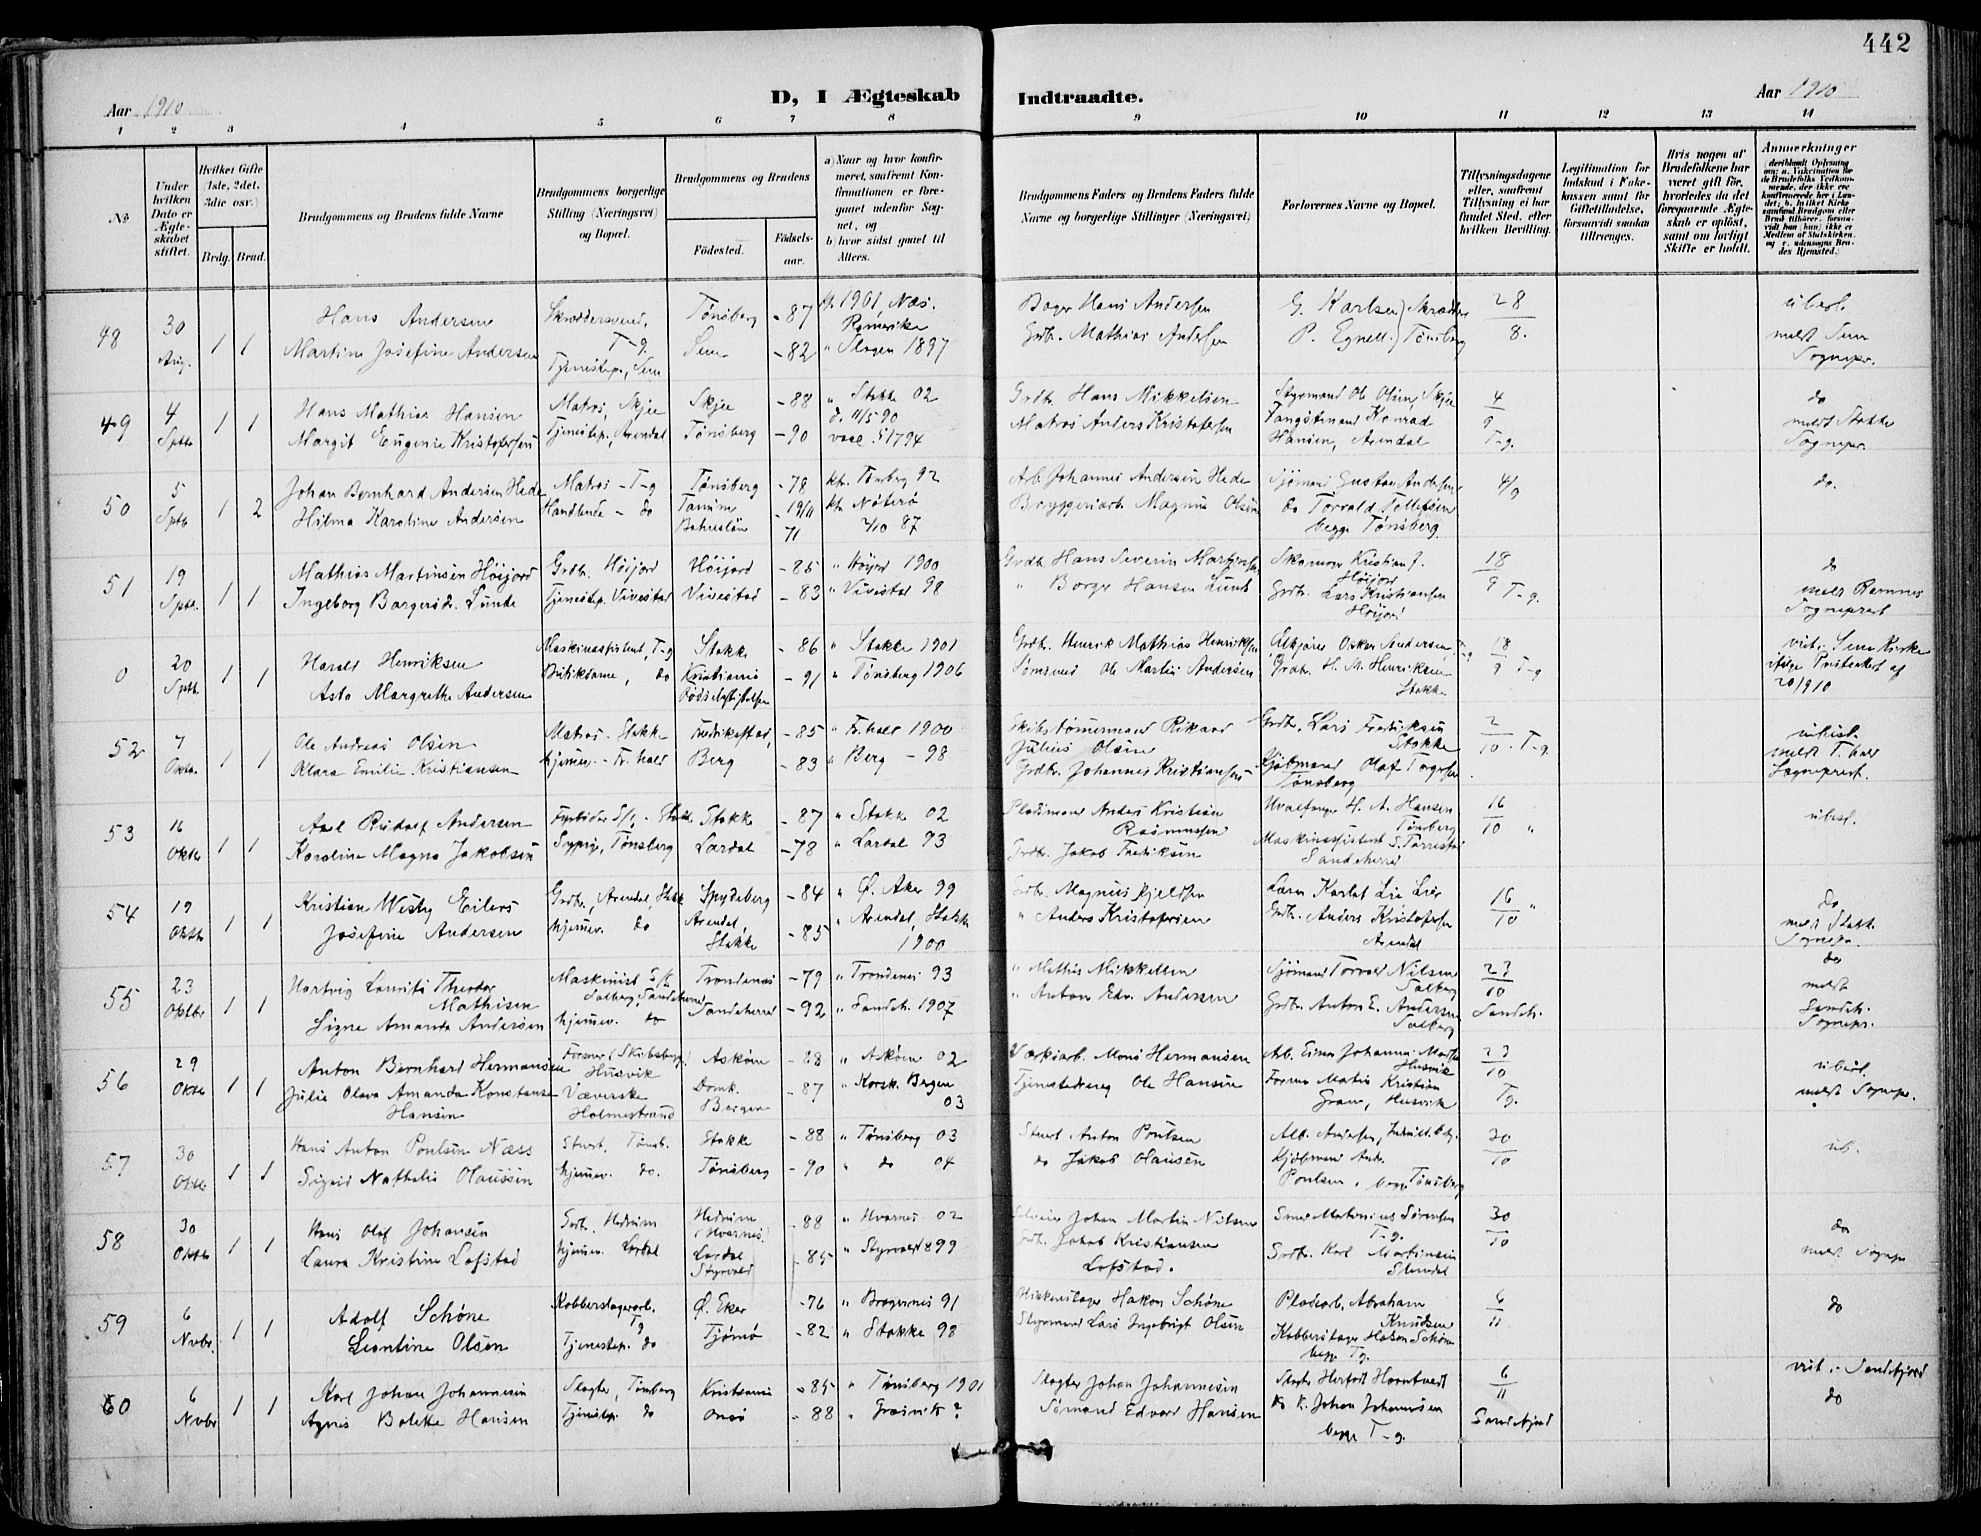 442
Aar 1910
D, I Ægteskab
Indtraadte.
Aar 1910
1 2 3 4 5 6 7 8 9 10 11 12 13 14
№
Under hvilken Dato er Ægteskabet stiftet.
Hvilket Gifte (1ste, 2det, 3die osv.)
Brdg. Brud.
Brudgommens og Brudens fulde Navne
Brudgommens borgerlige Stilling (Næringsvei) og Bopæl.
Brudgommens og Brudens
Fødested.
Fødselsaar.
a) Naar og hvor konfirmeret, saafremt Konfirmationen er foregaaet udenfor Sognet, og
b) hvor sidst gaaet til Alters.
Brudgommens Faders og Brudens Faders fulde Navne og borgerlige Stillinger (Næringsvei)
Forlovernes Navne og Bopæl.
Tillysningsdagene eller, saafremt Tillysning ei har fundet Sted, efter hvilken Bevilling.
Legitimation for Indskud i Enkekassen samt for Giftetilladelse, forsaavidt saadan tiltrænges.
Hvis nogen af Brudefolkene har været gift før, hvorledes da det foregaaende Ægteskab er opløst, samt om lovligt Skifte er holdt.
Anmerkninger
48 30 Aug. 1 1
Hans Andersen
Martine Josefine Andersen
Skræddersvend, T-g.
Tjenestep., Sem
Tønsberg -87
Sem -82
1901, Næs. Romerike
" Slagen 1897
Bager Hans Andersen
Grdb. Mathias Andersen
G. Karlsen
P. Egnell
Tønsberg
28/8.
ubesl.
meldt Sem Sognepr.
49 4 Sptb. 1 1
Hans Mathias Hansen
Margit Eugenie Kristofersen
Matros, Skjee
Tjenestep., Arendal
Skjee -88
Tønsberg -90
" Stokke 02
d. 11/5 90
Grdb. Hans Mikkelsen
Matros Anders Kristofersen
Styrmand Ole Olsen, Skjee
Fangstmand Konrad Hansen, Arendal
4/9 T-g.
do
meldt Stokke Sognepr.
50 5 Sptb. 1 2
Johan Bernhard Andersen Hede
Hilma Karoline Andersen
Matros - T-g
Handlende - do
Tønsberg -78
Tanum Bahuslen -19/11 71
kf. Tønsberg 92
kf. Nøterø 2/10 87
Arb. Johannes Andersen Hede
Bryggeriarb. Magnus Olsen
Sjømand Gustav Andersen
do Torvald Tollefsen
begge Tønsberg.
4/9
do.
51 19 Sptb. 1 1
Mathias Martinsen Høijord
Ingeborg Borgersdr. Lunde
Grdb. Høijord
Tjenestep. Vivestad
Høijord -85
Vivestad -83
" Høijord 1900
" Vivestad 98
Grdb. Hans Severin Martinsen
" Borge Hansen Lunde
Skomager Kristian J. Høijord
Grdb. Lars Kristiansen Høijord
18/9 T-g.
do
meldt Ramnes Sogneprest
0 20 Sptb. 1 1
Harald Henriksen
Asta Margrethe Andersen
Maskinassistent, T-g
Butikdame, do
Stokke -86
Kristiania Fødselsstiftelsen -91
" Stokke 1901
" Tønsberg 1906
Grdb. Henrik Mathias Henriksen
Tømmerm. Ole Martin Andersen
Oskar Andersen, T-g
Grdb. H. M. Henriksen Stokke
18/9 T-g
viet i Sem Kirke
20/9 10
52 7 Oktbr. 1 1
Ole Andreas Olsen
Klara Emilie Kristiansen
Matros. Stokke
hjemmev. - Fr. hald
Fredrikstad, -85
Berg -83
" Fr. hald 1900
" Berg - 98
Skibstømmermand Rikard Julius Olsen
Grdb. Johannes Kristiansen
Grdb. Lars Fredriksen Stokke
Kjøbmand Olaf Tørgersen Tønsberg
2/10. T-g.
ubesl.
meldt F. hald Sogneprest.
53 16 Oktbr 1 1
Axel Rudolf Andersen
Karoline Magna Jakobsen
Fyrbøder S/s - Stokke
Sypige, Tønsberg
Stokke -87
Lardal -78
" Stokke 02
" Lardal 93
Pladsmand Anders Kristian Rasmussen
Grdb. Jakob Fredriksen
Hvalfanger H. A. Hansen Tønsberg
Maskinassistent S. Torrestad Sandeherred
16/10 "
ubesl.
54 19 Oktb. 1 1
Kristian Westby Eilers
Josefine Andersen
Grdbr., Arendal, Stokke
hjemmev. do
Spydeberg -84
Arendal, Stokke -85
" Ø. Aker 99
" Arendal, Stokke 1900
Grdb. Magnus Kjeldsen
" Anders Kristofersen
Lars Karlot Lie Lier
Grdb. Anders Kristofersen Arendal
16/10 "
do
meldt Stokke Sognepr.
55 23 Oktbr 1 1
Hartvig Laurits Theodor Mathisen
Signe Amanda Andersen
Maskinist S/S Solberg, Sandeherred
hjemmev. do
Trondenæs -79
Sandeherred -92
" Trondenes 93
" Sandeh. 1907
" Mathis Mikkelsen
" Anton Edv. Andersen
Sjømand Torvald Nilsen Solberg
Grdb. Anton E. Andersen Solberg
23/10 Sandeh.
do
meldt Sandeh. Sognepr.
56 29 Oktbr 1 1
Anton Bernhard Hermansen
Julie Olava Amanda Konstanse Hansen
Former (Skibsbygg.) Husvik
Væverske Holmestrand
Askøen -88
Domk. Bergen -87
" Askøen 02
" Korsk. Bergen 03
Værksarb. Mons Hermansen
Tjenestedreng Ole Hansen
Arb. Einar Johannes Husvik
Former Mathis Kristian Gram, Husvik
23/10 Tg.
ubesl.
meldt Sognepr.
57 30 Oktbr 1 1
Hans Anton Poulsen Næss
Sigrid Nathalie Olaussen
Stuert. Tønsb.
hjemmev. do.
Stokke -88
Tønsberg -90
" Tønsberg 03
" do 04
Stuert Anton Poulsen
do Jakob Olausen
Kjøbmand Ank. Poulsen, begge Tønsberg
30/10
ub.
58 30 Oktbr 1 1
Hans Olaf Johansen
Laura Kristine Lofstad
Grdb. Hedrum
hjemmev. Lardal
Hedrum (Hvarnes) -88
Lardal Styrvold -85
" Hvarnes 02
" Styrvold 1899
Selveier Johan Martin Nilsen
Grdb. Jakob Kristiansen Lofstad.
Smed Mathinius Sørensen T-g.
Grdb. Karl Martinsen
30/10
do
meldt Sognepr
59 6 Novbr. 1 1
Adolf Schøne
Leontine Olsen
Kobberslagerarb. Tg
Tjenestep. do
Ø. Eker -76
Tjømø -82
" Bragernes 91
" Stokke 98
Blikkenslager Hakon Schøne
Styrmand Lars Ingebrigt Olsen
Pladearb. Abraham Knudsen
Kobberslager Hakon Schøne
begge Tg.
6/11
do
60 6 Novbr 1 1
Karl Johan Johannesen
Agnes Bolette Hansen
Slagter, Tønsberg
Tjenestep. do
Kristiania -85
Onsø -88
" Tønsberg 1901
" Græsvik ?
Slagter Johan Johannesen
Sømand Edvard Hansen
Slagter Herfort Horntvedt
do K. Johan Johannesen
begge T-g.
6/11 Sandefjord
viet i Sandefjord
do